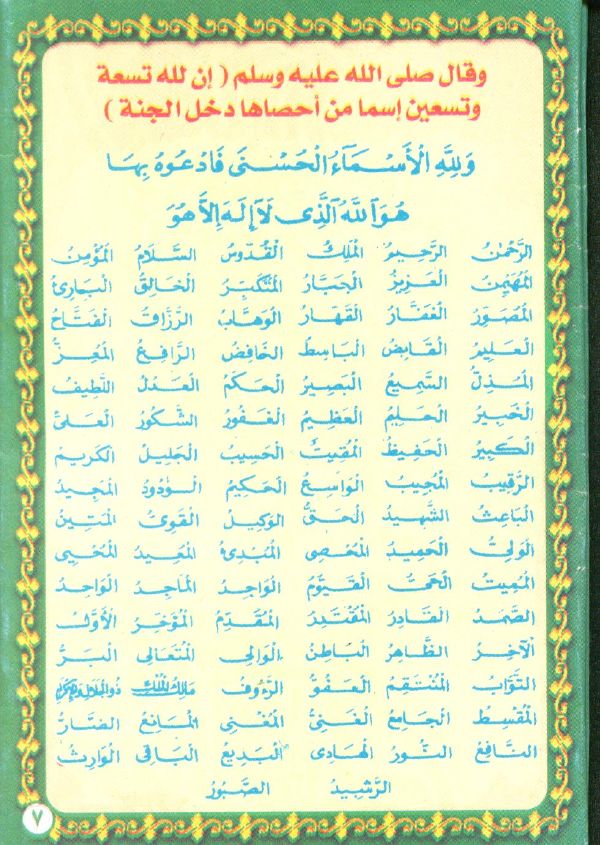 وقال صلى الله عليه وسلم ( إن لله تسعة
وتسعين إسما من أحصاها دخل الجنة )
وَلِلَّهِ الْأَسْمَآءُ الْحُسْنَى فَادْعُوهُ بِهَا
هُوَ اللَّهُ الَّذِى لَا إِلَهَ إِلَّا هُوَ
الرَّحْمٰنُ الرَّحِيمُ الْمَلِكُ الْقُدُّوسُ السَّلَامُ الْمُؤْمِنُ
الْمُهَيْمِنُ الْعَزِيزُ الْجَبَّارُ الْمُتَكَبِّرُ الْخَالِقُ الْبَارِئُ
الْمُصَوِّرُ الْغَفَّارُ الْقَهَّارُ الْوَهَّابُ الرَّزَّاقُ الْفَتَّاحُ
الْعَلِيمُ الْقَابِضُ الْبَاسِطُ الْخَافِضُ الرَّافِعُ الْمُعِزُّ
الْمُذِلُّ السَّمِيعُ الْبَصِيرُ الْحَكَمُ الْعَدْلُ اللَّطِيفُ
الْخَبِيرُ الْحَلِيمُ الْعَظِيمُ الْغَفُورُ الشَّكُورُ الْعَلِىُّ
الْكَبِيرُ الْحَفِيظُ الْمُقِيتُ الْحَسِيبُ الْجَلِيلُ الْكَرِيمُ
الرَّقِيبُ الْمُجِيبُ الْوَاسِعُ الْحَكِيمُ الْوَدُودُ الْمَجِيدُ
الْبَاعِثُ الشَّهِيدُ الْحَقُّ الْوَكِيلُ الْقَوِىُّ الْمَتِينُ
الْوَلِىُّ الْحَمِيدُ الْمُحْصِى الْمُبْدِئُ الْمُعِيدُ الْمُحْيِى
الْمُمِيتُ الْحَىُّ الْقَيُّومُ الْوَاجِدُ الْمَاجِدُ الْوَاحِدُ
الصَّمَدُ الْقَادِرُ الْمُقْتَدِرُ الْمُقَدِّمُ الْمُؤَخِّرُ الْأَوَّلُ
الْآخِرُ الظَّاهِرُ الْبَاطِنُ الْوَالِى الْمُتَعَالِى الْبَرُّ
التَّوَّابُ الْمُنْتَقِمُ الْعَفُوُّ الرَّءُوفُ مَالِكُ الْمُلْكِ ذُو الْجَلَالِ وَالْإِكْرَامِ
الْمُقْسِطُ الْجَامِعُ الْغَنِىُّ الْمُغْنِى الْمَانِعُ الضَّارُّ
النَّافِعُ النُّورُ الْهَادِى الْبَدِيعُ الْبَاقِى الْوَارِثُ
الرَّشِيدُ الصَّبُورُ
٧